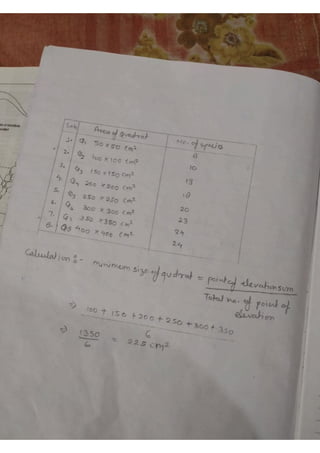 S.no Area of quadrat No. of species
1. Q1 50 x 50 cm²
2. Q2 100 x 100 cm² 10
3. Q3 150 x 150 cm²
4. Q4 200 x 200 cm²
5. Q5 250 x 250 cm² 20
6. Q6 300 x 300 cm² 23
7. Q7 350 x 350 cm² 24
8. Q8 400 x 400 cm² 24
Calculation :- minimum size of qudrat = point of elevation sum
Total no. of point of
elevation
⇒ 100 + 150 + 200 + 250 + 300 + 350
6
⇒ 1350 = 225 cm²
6